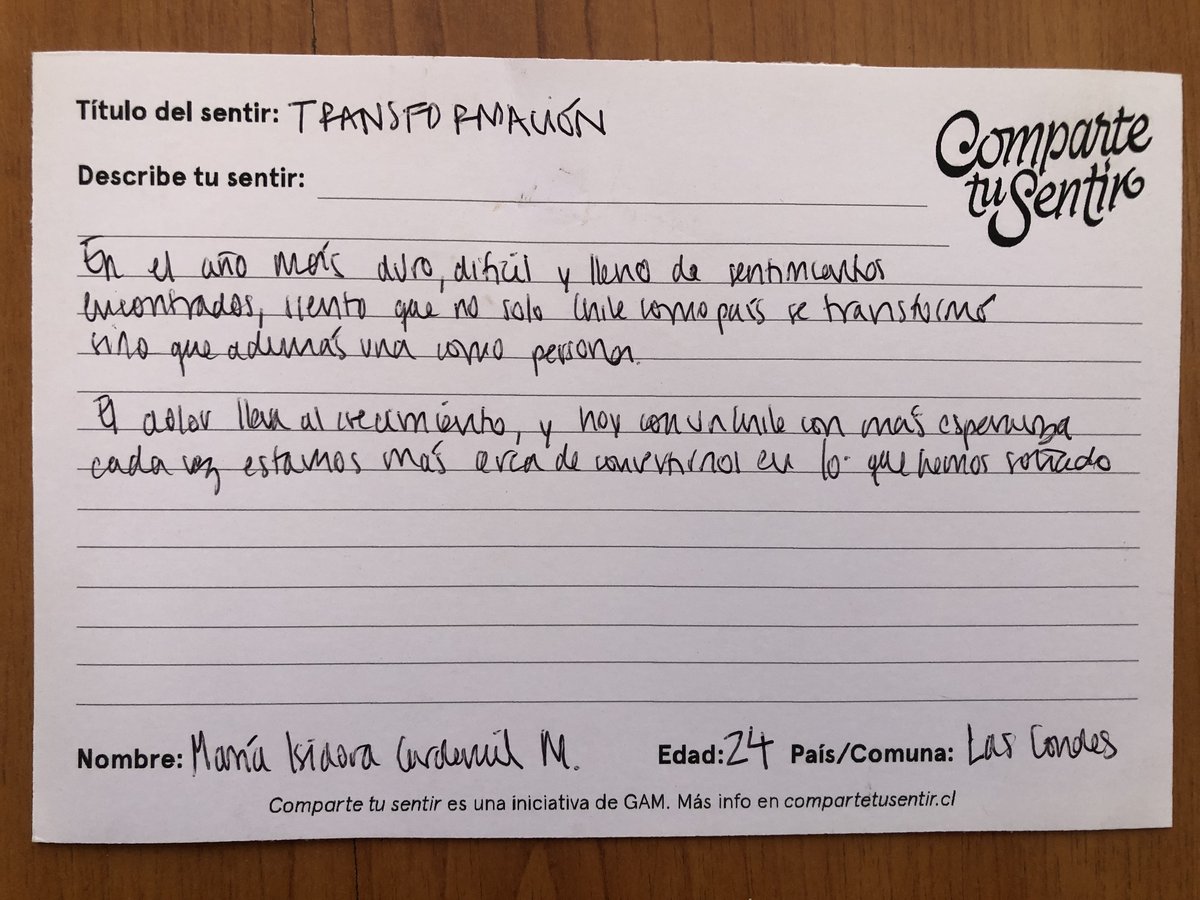 Título del sentir: TRANSFORMACIÓN
Comparte
tu Sentir
Describe tu sentir:
En el año más duro, difícil y lleno de sentimientos
encontrados, siento que no solo Chile como país se transformó
sino que además una como persona.
El dolor lleva al crecimiento, y hoy con un Chile con más esperanza
cada vez estamos más cerca de convertirnos en lo que hemos soñado
Nombre: María Isidora Cardemil M. Edad: 24 País/Comuna: Las Condes
Comparte tu sentir es una iniciativa de GAM. Más info en compartetusentir.cl